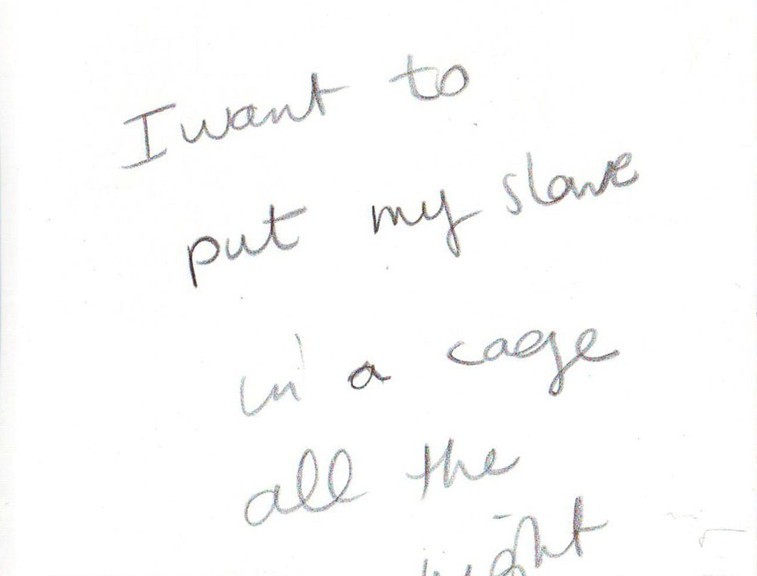 I want to
put my slave
in a cage
all the
night